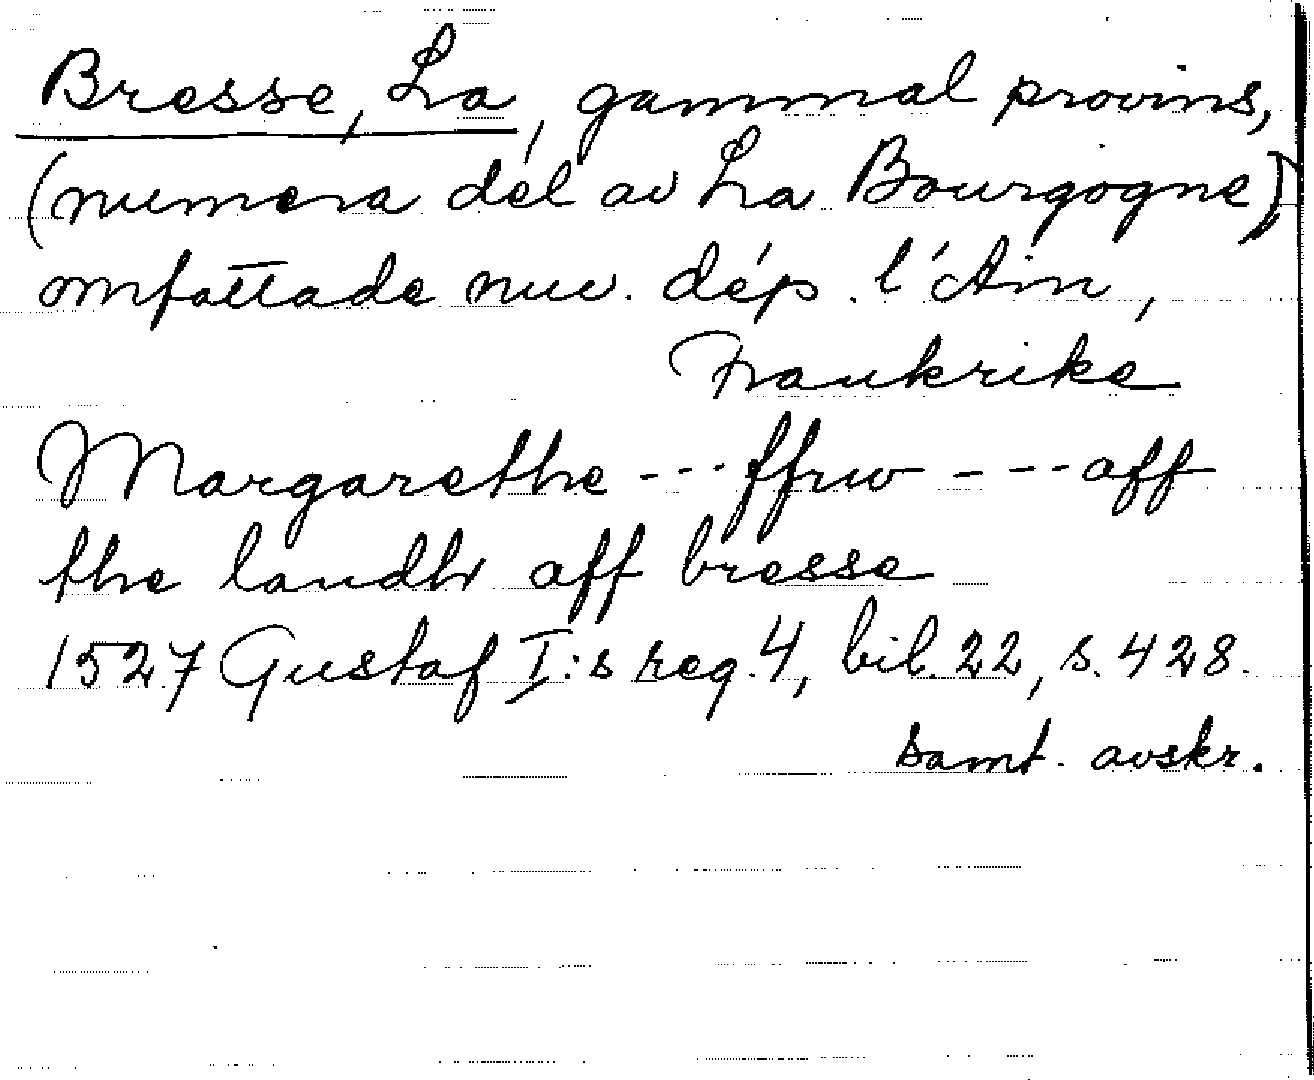 Bresse, La, gammal provins,
(numera del av La Bourgogne)
omfattade nuv. dép. l'Ain,
Frankrike
Margarethe --- ffrw --- aff
the landh aff bresse
1527 Gustaf I:s reg. 4, bil. 22, s. 428.
samt. avskr.